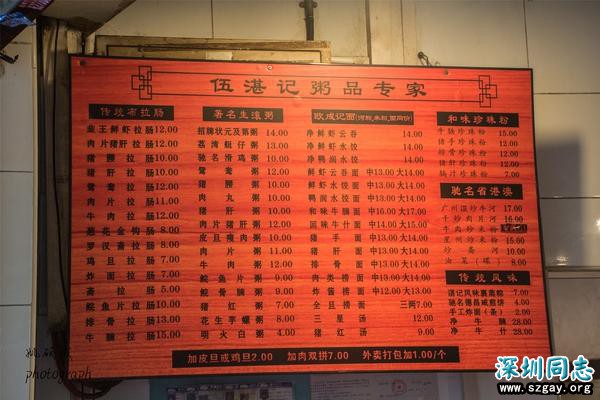 伍湛记粥品专家
传统布拉肠
韭王鲜虾拉肠 12.00
肉片猪肝拉肠 12.00
猪腰拉肠 11.00
猪肝拉肠 11.00
鸳鸯拉肠 12.00
肉片拉肠 11.00
牛肉拉肠 11.00
葱花金钩肠 8.00
罗汉斋拉肠 8.00
鸡旦拉肠 7.00
炸面拉肠 7.00
斋拉肠 5.00
鲩鱼片拉肠 10.00
排骨拉肠 13.00
牛腩拉肠 15.00
著名生滚粥
招牌状元及第粥 14.00
荔湾艇仔粥 13.00
驰名滑鸡粥 14.00
鸳鸯粥 12.00
猪腰粥 12.00
肉丸粥 11.00
猪肝粥 11.00
肉片猪肝粥 12.00
皮旦瘦肉粥 13.00
肉片粥 11.00
牛肉粥 12.00
鲩鱼片粥 9.00
鲩骨腩粥 9.00
猪红粥 7.00
花生芋螺粥 8.00
明火白粥 4.00
欧成记面(河粉,米粉,面同价)
净鲜虾云吞 14.00
净鲜虾水饺 14.00
净鸭润水饺 14.00
鲜虾云吞面 中13.00 大14.00
鲜虾水饺面 中13.00 大14.00
鸭润水饺面 中13.00 大14.00
和味牛腩面 中16.00 大17.00
回味牛什面 中14.00 大15.00
猪手面 中13.00 大14.00
猪肝面 中13.00 大14.00
排骨面 中13.00 大14.00
肉类捞面 中13.00 大14.00
炸酱捞面 中12.00 大13.00
全旦捞面 三两7.00
三星汤 12.00
猪红汤 9.00
和味珍珠粉
牛肠珍珠粉 15.00
猪手珍珠粉 12.00
排骨珍珠粉 12.00
猪肝珍珠粉 12.00
肠汁珍珠粉 7.00
驰名省港澳
广州湿炒牛河 17.00
干炒肉片河 16.00
牛肉炒米粉
星州炒米粉 15.00
炒斋河 10.00
油菜(碟) 8.00
传统风味
湛记风味裹蒸粽 7.00
驰名德昌咸煎饼 3.00
手工炸面(条) 2.00
净牛腩 28.00
净牛什 28.00
加皮旦或鸡旦2.00 加肉双拼7.00 外卖打包加1.00/个
photograph
深圳同志
www.szgay.org